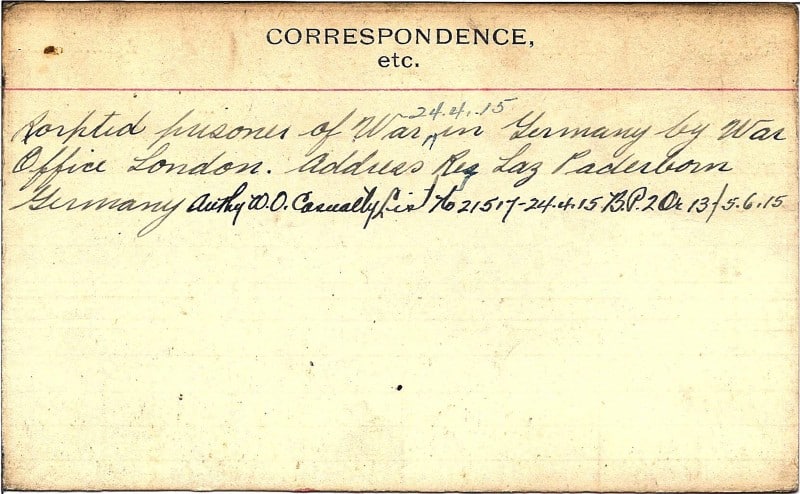 CORRESPONDENCE,
etc.
24.4.15
Rorpted prisoner of War ^ in Germany by War
Office London. Address Res Laz Paderborn
Germany Authy W.O. Casualty List No 21517-24.4.15 B.P.2 Or 13/5.6.15